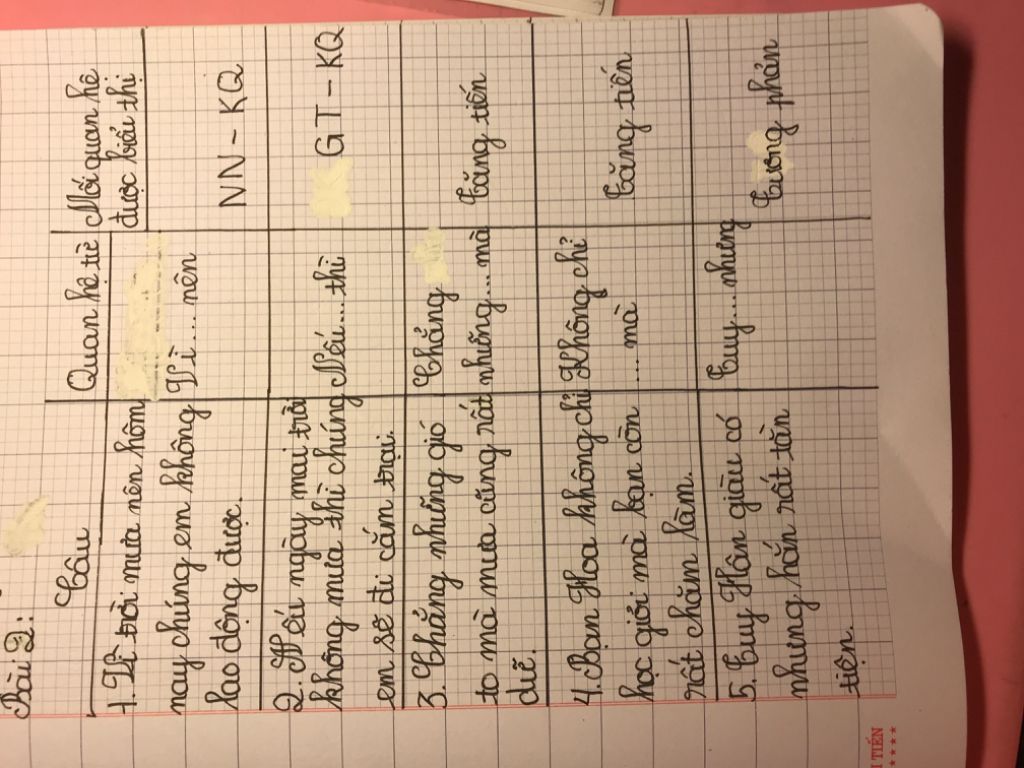 Bài 2:
Câu
Quan hệ từ
Mối quan hệ
được biểu thị
1. Vì trời mưa nên hôm
nay chúng em không
lao động được.
Vì... nên
NN - KQ
2. Nếu ngày mai trời
không mưa thì chúng
em sẽ đi cắm trại.
Nếu... thì
GT - KQ
3. Chẳng những gió
to mà mưa cũng rất
dữ.
Chẳng
những... mà
Tăng tiến
4. Bạn Hoa không chỉ
học giỏi mà bạn còn
rất chăm làm.
Không chỉ
... mà
Tăng tiến
5. Tuy Hân giàu có
nhưng hắn rất tằn
tiện.
Tuy... nhưng
Tương phản
I TIẾN